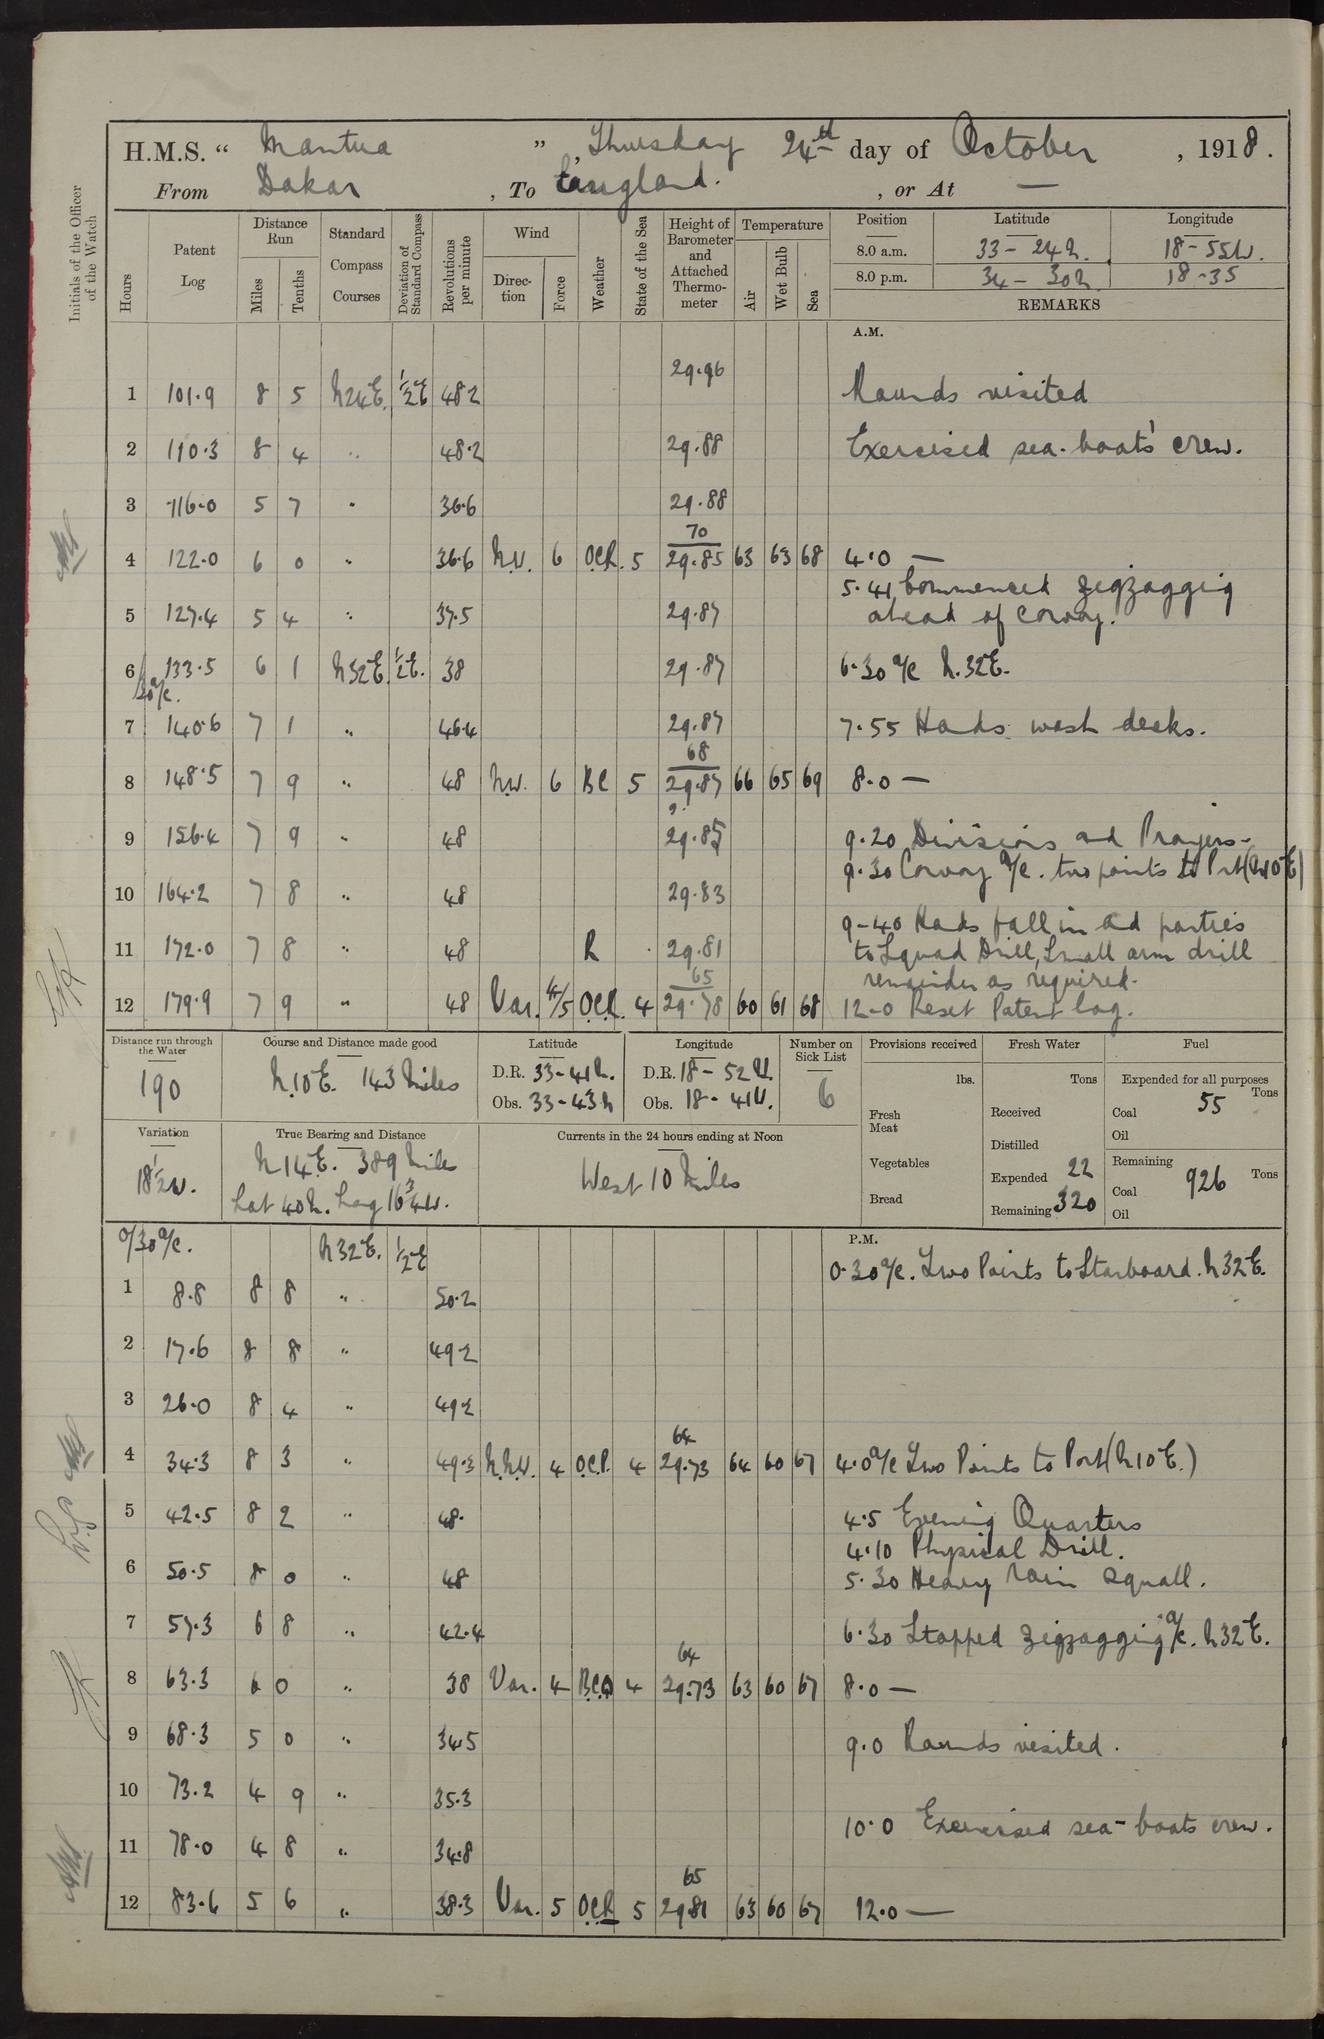 H.M.S. “ Mantua ” , Thursday 24th day of October , 1918 .
From Dakar , To England. , or At —
Initials of the Officer of the Watch
Hours
Patent Log
Distance Run
Miles
Tenths
Standard Compass Courses
Deviation of Standard Compass
Revolutions per minute
Wind
Direction
Force
Weather
State of the Sea
Height of Barometer and Attached Thermometer
Temperature
Air
Wet Bulb
Sea
Position Latitude Longitude
8.0 a.m. 33 - 24 N. 18 - 55 W.
8.0 p.m. 34 - 30 N. 18 - 35
REMARKS
A.M.
1 101.9 8 5 N24E. ½E 48.2 29.96 Rounds visited
2 110.3 8 4 " 48.2 29.88 Exercised sea-boats' crew.
3 116.0 5 7 " 36.6 29.88
70
4 122.0 6 0 " 36.6 N.W. 6 O.C.R. 5 29.85 63 63 68 4.0 —
5.41 Commenced zigzaggig
5 127.4 5 4 " 37.5 29.87 ahead of convoy.
6 133.5 6 1 N32E. ½E. 38 29.87 6.30 a/c N.32E.
30 a/c.
7 140.6 7 1 " 46.4 29.87 7.55 Hands wash decks.
68
8 148.5 7 9 " 48 N.W. 6 BC 5 29.87 66 65 69 8.0 —
9 156.4 7 9 " 48 29.85 9.20 Divisions and Prayers.
9.30 Convoy a/c. two points to Port (N10E)
10 164.2 7 8 " 48 29.83
9-40 Hands fall in and parties
11 172.0 7 8 " 48 R 29.81 to Squad Drill, Small arm drill
65
remainder as required.
12 179.9 7 9 " 48 Var. 4/5 O.C.R. 4 29.78 60 61 68 12-0 Reset Patent log.
Distance run through the Water
190
Course and Distance made good
N.10E. 143 Miles
Latitude
D.R. 33-41N.
Obs. 33-43N
Longitude
D.R. 18 - 52 W.
Obs. 18 - 41W.
Number on Sick List
6
Provisions received
lbs.
Fresh Meat
Vegetables
Bread
Fresh Water
Tons
Received
Distilled
Expended 22
Remaining 320
Fuel
Expended for all purposes
Tons
Coal 55
Oil
Remaining
Tons
Coal 926
Oil
Variation
18½W.
True Bearing and Distance
N14E. 389 Miles
Lat 40N. Long 16¾W.
Currents in the 24 hours ending at Noon
West 10 Miles
P.M.
0/30 a/c. N32E. ½E
0.30 a/c. Two Points to Starboard. N32E.
1 8.8 8 8 " 50.2
2 17.6 8 8 " 49.2
3 26.0 8 4 " 49.2
64
4 34.3 8 3 " 49.3 N.N.W. 4 O.C.P. 4 29.73 64 60 67 4.0 a/c Two Points to Port (N10E.)
5 42.5 8 2 " 48. 4.5 Evening Quarters
4.10 Physical Drill.
6 50.5 8 0 " 48 5.30 Heavy rain squall.
7 57.3 6 8 " 42.4 6.30 Stopped zigzagging a/c. N32E.
64
8 63.3 6 0 " 38 Var. 4 B.C.Q 4 29.73 63 60 67 8.0 —
9 68.3 5 0 " 34.5 9.0 Rounds visited.
10 73.2 4 9 " 35.3
10.0 Exercised sea-boats crew.
11 78.0 4 8 " 34.8
65
12 83.6 5 6 " 38.3 Var. 5 O.C.R 5 29.81 63 60 67 12.0 —